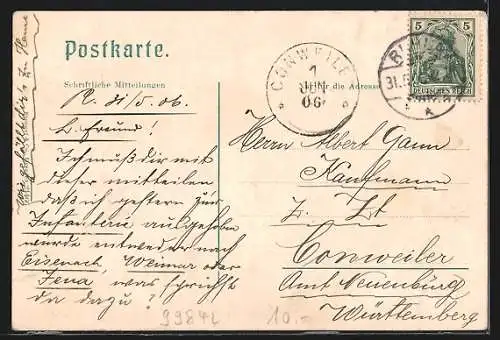 Postkarte.
Schriftliche Mitteilungen
Für die Adresse
R. 31/5.06.
L. Freund!
Ich muß dir mit
dieser mitteilen
daß ich gestern zur
Infanterie ausgehoben
wurde entweder nach
Eisenach, Weimar oder
Jena, was sprichst
du dazu?
Wie gefällt dir's zu Hause
CONWEILER
1
JUN
06
31.5
5 5
DEUTSCHES REICH
Herrn Albert Gann
Kaufmann
z. Zt
Conweiler
Amt Neuenbürg
Württemberg
99842
10.-